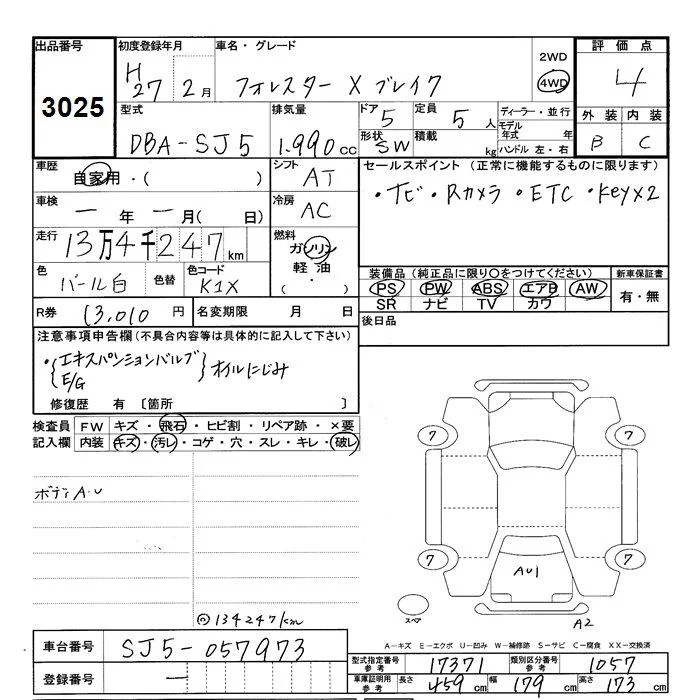 出品番号 初度登録年月 車名・グレード 2WD 評価点
3025 H27 2月 フォレスター X ブレイク 4WD 4
型式 排気量 ドア 5 定員 5人 ディーラー・並行 外装 内装
DBA-SJ5 1.990cc 形状 SW 積載 kg モデル年式 年 ハンドル 左・右 B C
車歴 自家用・( ) シフト AT セールスポイント (正常に機能するものに限ります)
車検 ー年ー月( 日) 冷房 AC ・ナビ ・Rカメラ ・ETC ・Keyx2
走行 13万4千247km 燃料 ガソリン
軽油・
( )
色 パール白 色替 色コード K1X 装備品(純正品に限り○をつけてください) 新車保証書
PS PW ABS エアB AW 有・無
SR ナビ TV カワ
R券 13,010円 名変期限 月 日 後日品
注意事項申告欄(不具合内容等は具体的に記入して下さい)
・{エキスパンションバルブ
E/G }オイルにじみ
修復歴 有〔箇所 〕
検査員記入欄 FW キズ・飛石・ヒビ割・リペア跡・×要
内装 キズ・汚レ・コゲ・穴・スレ・キレ・破レ
ボディA.U
7 7
7 7
AU1
スペア A2
134247km
A-キズ E-エクボ U-凹み W-補修跡 S-サビ C-腐食 XX-交換済
車台番号 SJ5-057973
型式指定番号 参考 17371 類別区分番号 参考 1057
登録番号 ー
車庫証明用 参考 長さ 459cm 幅 179cm 高さ 173cm